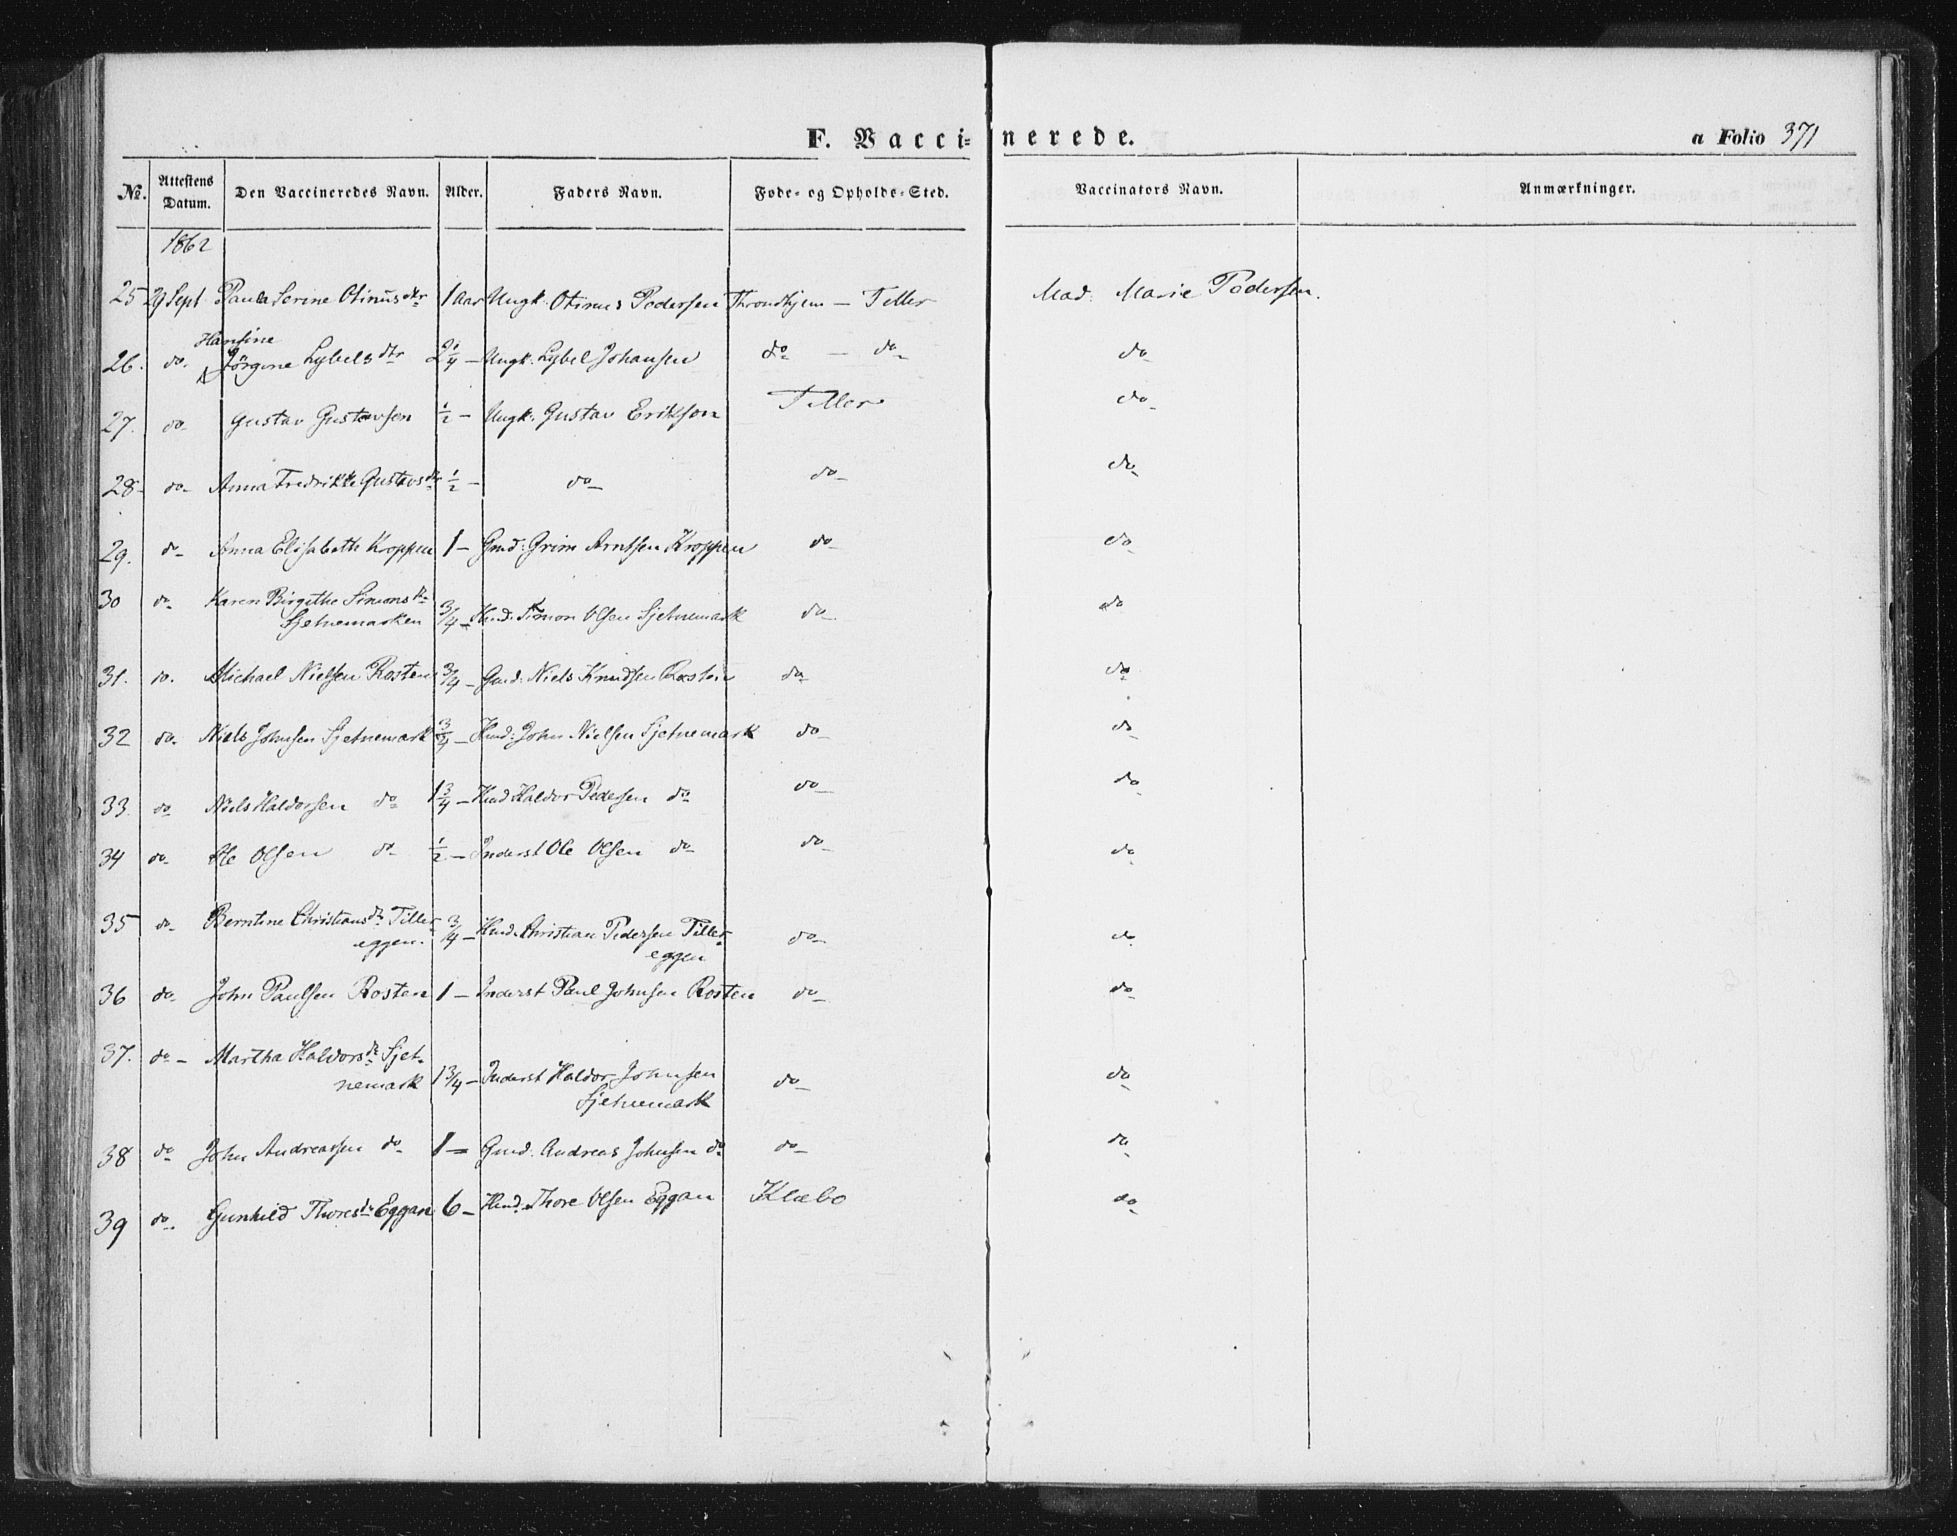 F. Vaccinerede. a Folio 371
No. Attestens Datum. Den Vaccineredes Navn. Alder. Faders Navn. Føde- og Opholds-Sted. Vaccinators Navn. Anmærkninger.
1862
25 29 Sept Paula Serine Otinusdtr 1 Aar Ungk: Otinus Pedersen Throndhjem – Tiller Mad: Marie Pedersen.
Hansine
26. do. Jörgine Lybelsdtr 2 1/4 – Ungk: Lybel Johansen do – do do
27. do Gustav Gustavsen 1/2 – Ungk: Gustav Erikson Tiller do
28 do Anna Fredrikke Gustavsdtr 1/2 – do do do
29. do Anna Elisabeth Kroppen 1 – Gmd: Grim Arntsen Kroppen do do
30 do Karen Birgithe Simonsdr
Sjetnemarken 3/4 – Husd: Simon Olsen Sjetnemark do do
31. do. Michael Nielsen Rosten 3/4 – Gmd: Niels Knudsen Rosten do do
32 do. Niels Johnsen Sjetnemark 3/4 – Husd: John Nielsen Sjetnemark do do
33 do Niels Haldorsen do 1 3/4 – Husd Haldor Pedersen do do do
34 do Ole Olsen do 1/2 – Inderst Ole Olsen do do do
35 do Berntine Christiansdr Tiller-
eggen. 3/4 – Husd. Christian Pedersen Tiller-
eggen do do
36 do John Paulsen Rosten 1 – Inderst Paul Johnsen Rosten do do
37. do – Martha Haldorsdr Sjet-
nemark 1 3/4 – Inderst Haldor Johnsen
Sjetnemark do do
38 do John Andreassen do 1 – Gmd. Andreas Johnsen do do do
39 do. Gunhild Thoresdr Eggan 6 – Husd. Thore Olsen Eggan Klæbo do